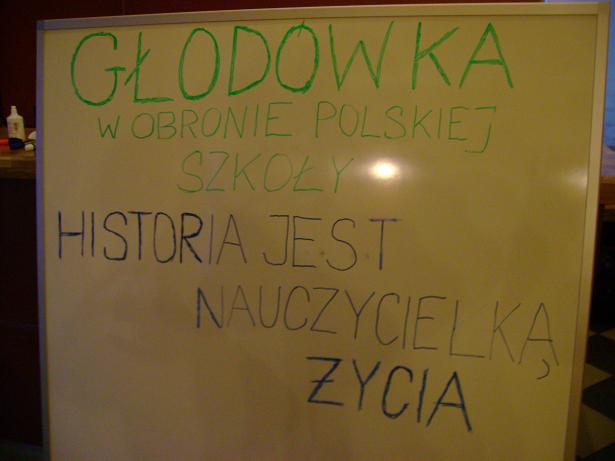 GŁODÓWKA
W OBRONIE POLSKIEJ
SZKOŁY
HISTORIA JEST
NAUCZYCIELKĄ
ŻYCIA